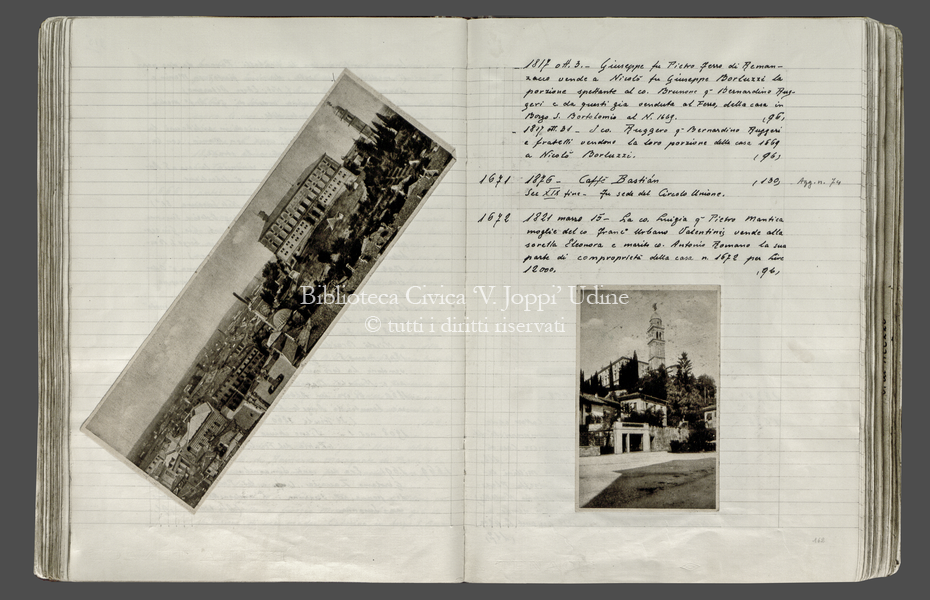 _ 1817 ott. 3. - Giuseppe fu Pietro Ferro di Reman-
zacco vende a Nicolò fu Giuseppe Bortuzzi la
porzione spettante al co. Brunone q- Bernardino Rug-
geri e da questi già venduta al Ferro, della casa in
Borgo S. Bortolomio al N. 1669. (96)
_ 1817 ott. 31 - I co. Ruggero q- Bernardino Ruggeri
e fratelli vendono la loro porzione della casa 1669
a Nicolò Bortuzzi. (96)
1671 1876 - Caffè Bastian (130) Agg. n. 74
Sec XIX fine. - Fu sede del Circolo Unione.
1672 1821 marzo 15 - La co. Luigia q- Pietro Mantica
moglie del co. Franc° Urbano Valentinis vende alla
sorella Eleonora e marito co. Antonio Romano la sua
parte di comproprietà della casa n. 1672 per Lire
12000. (96)
Biblioteca Civica 'V. Joppi' Udine
© tutti i diritti riservati